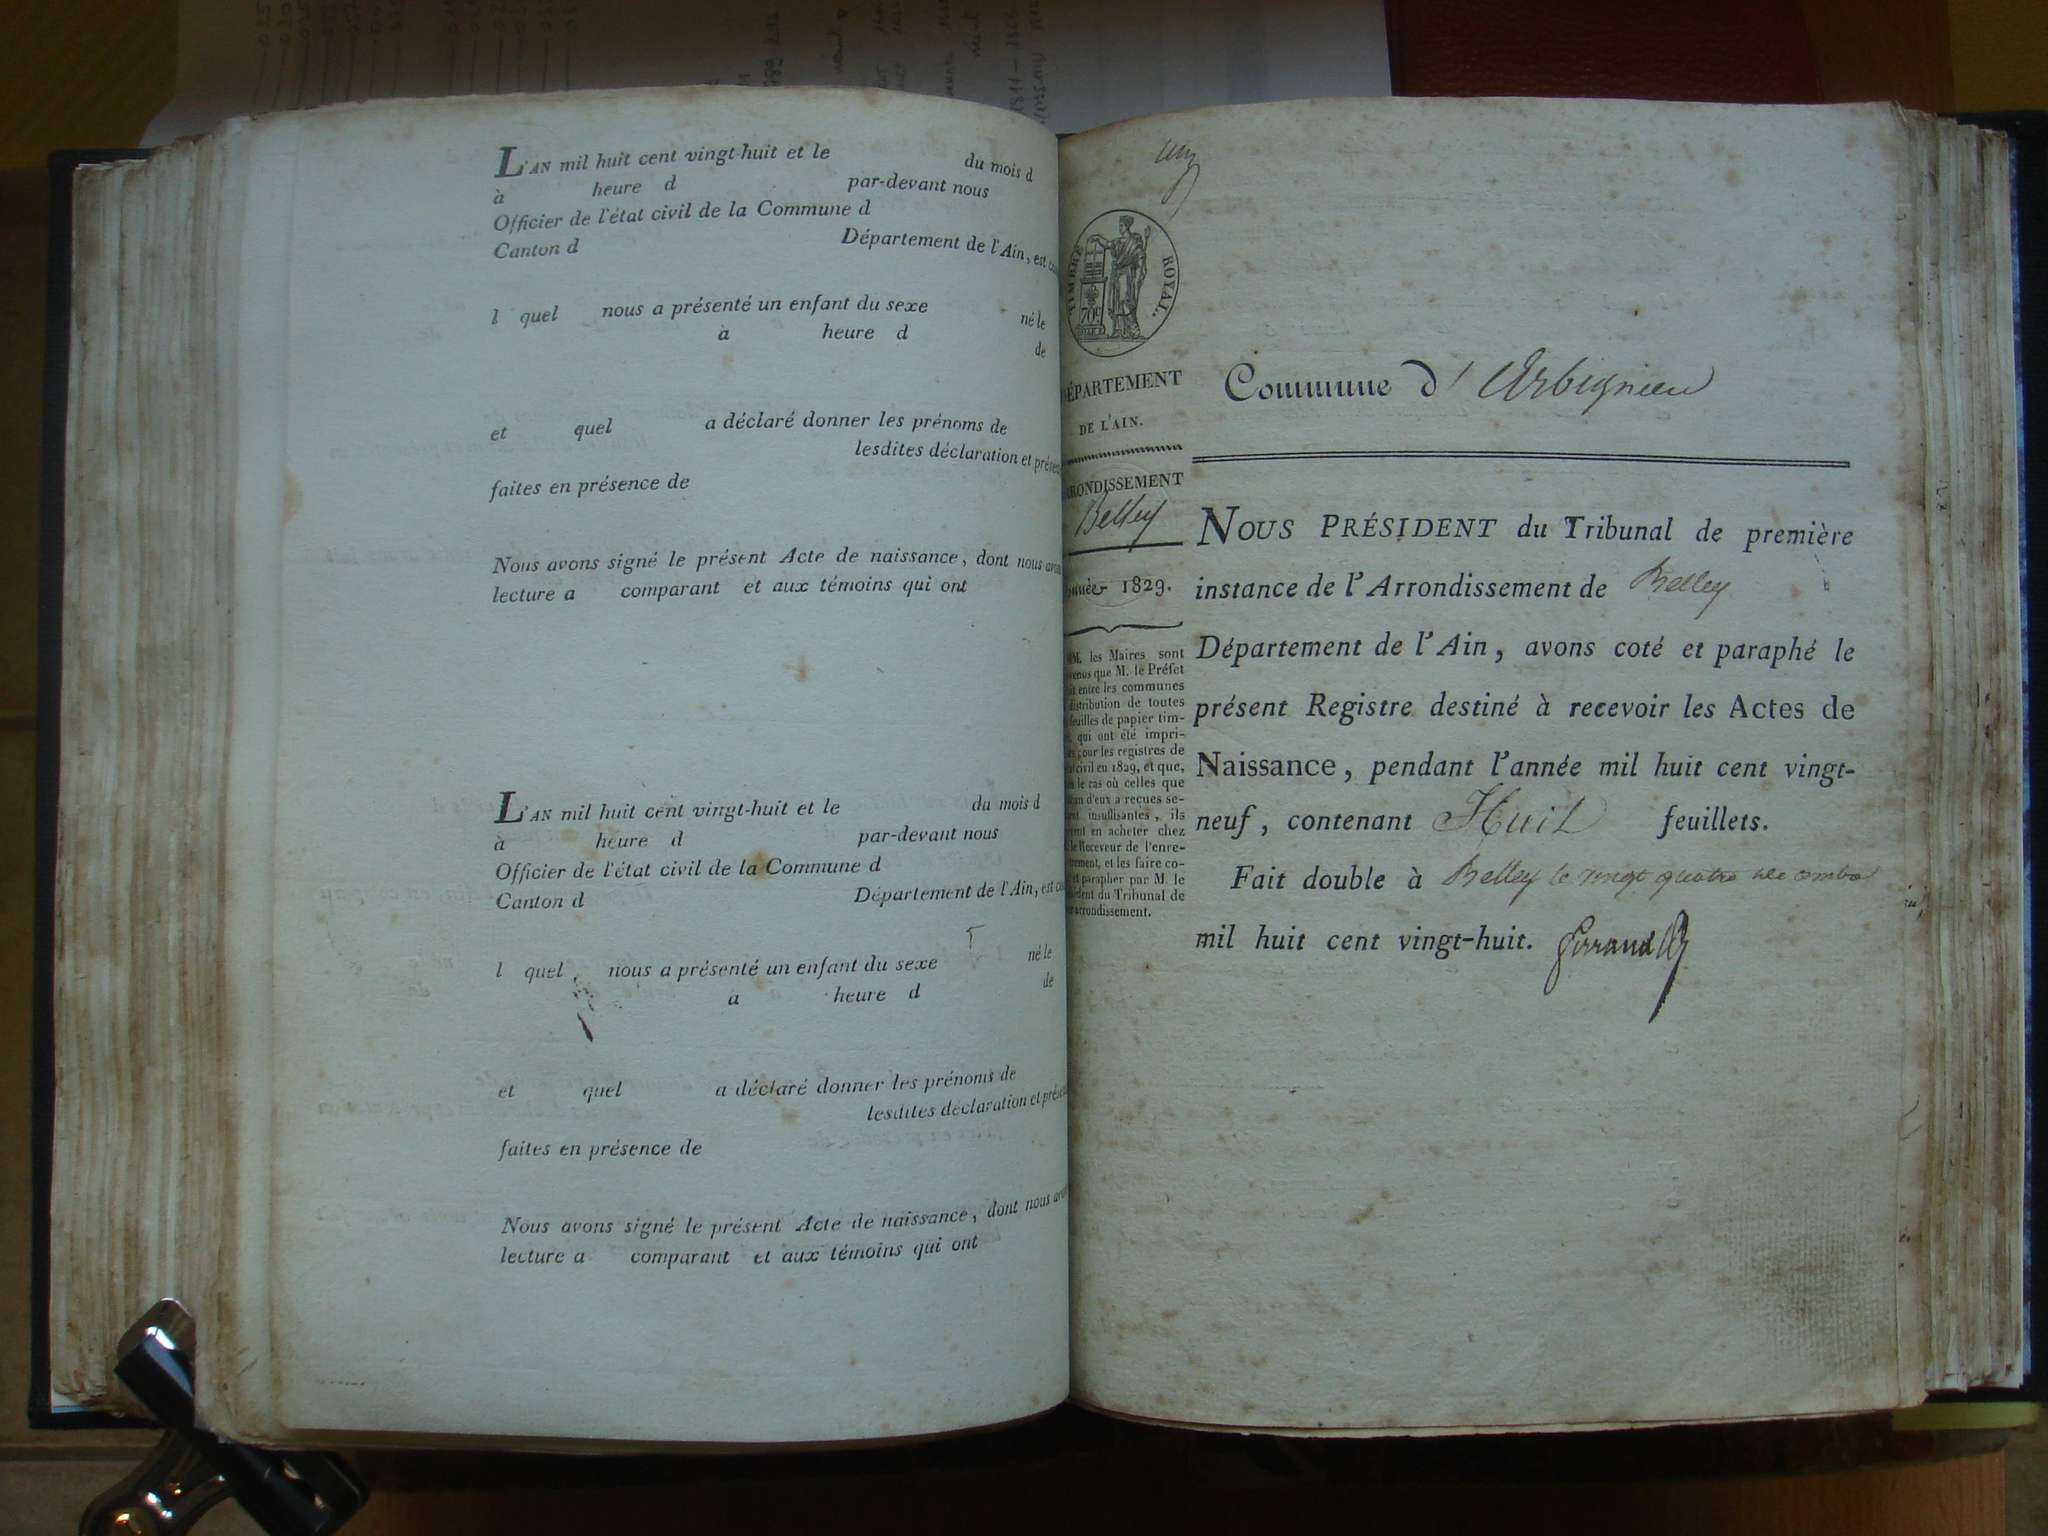 L'AN mil huit cent vingt-huit et le du mois d
à heure d par-devant nous
Officier de l'état civil de la Commune d
Canton d Département de l'Ain, est
l quel nous a présenté un enfant du sexe né le
à heure d de
et quel a déclaré donner les prénoms de
lesdites déclaration et
faites en présence de
Nous avons signé le présent Acte de naissance, dont nous
lecture a comparant et aux témoins qui ont
L'AN mil huit cent vingt-huit et le du mois d
à heure d par-devant nous
Officier de l'état civil de la Commune d
Canton d Département de l'Ain, est
l quel nous a présenté un enfant du sexe né le
a heure d de
et quel a déclaré donner les prénoms de
lesdites déclaration et
faites en présence de
Nous avons signé le présent Acte de naissance, dont nous
lecture a comparant et aux témoins qui ont
TIMBRE ROYAL.
70c
ÉPARTEMENT
DE L'AIN.
RONDISSEMENT
Belley
1829.
MM. les Maires sont
que M. le Préfet
entre les communes
distribution de toutes
feuilles de papier tim-
qui ont été impri-
pour les registres de
civil en 1829, et que,
le cas où celles que
d'eux a reçues se-
insuffisantes, ils
en acheter chez
le Receveur de l'enre-
et les faire co-
et parapher par M. le
du Tribunal de
arrondissement.
Commune d' Arbignieu
NOUS PRÉSIDENT du Tribunal de première
instance de l'Arrondissement de Belley
Département de l'Ain, avons coté et paraphé le
présent Registre destiné à recevoir les Actes de
Naissance, pendant l'année mil huit cent vingt-
neuf, contenant Huit feuillets.
Fait double à Belley le vingt quatre decembre
mil huit cent vingt-huit.